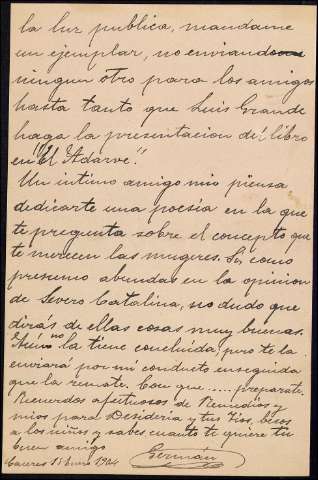 la luz publica, mandame
un ejemplar, no enviando
ningun otro para los amigos
hasta tanto que Luis Grande
haga la presentacion del libro
en "El Adarve."
Un intimo amigo mio piensa
dedicarte una poesía en la que
te pregunta sobre el concepto que
te merecen las mugeres. Si, como
presumo abundas en la opinion
de Severo Catalina, no dudo que
dirás de ellas cosas muy buenas.
Aún no la tiene concluida, pero te la
enviara por mi conducto enseguida
que la remate. Con que ..... preparate.
Recuerdos afectuosos de Remedios y
mios para Desideria y tus Tios, besos
a los niños y sabes cuanto te quiere tu
buen amigo
Caceres 15 Enero 1904 Germán